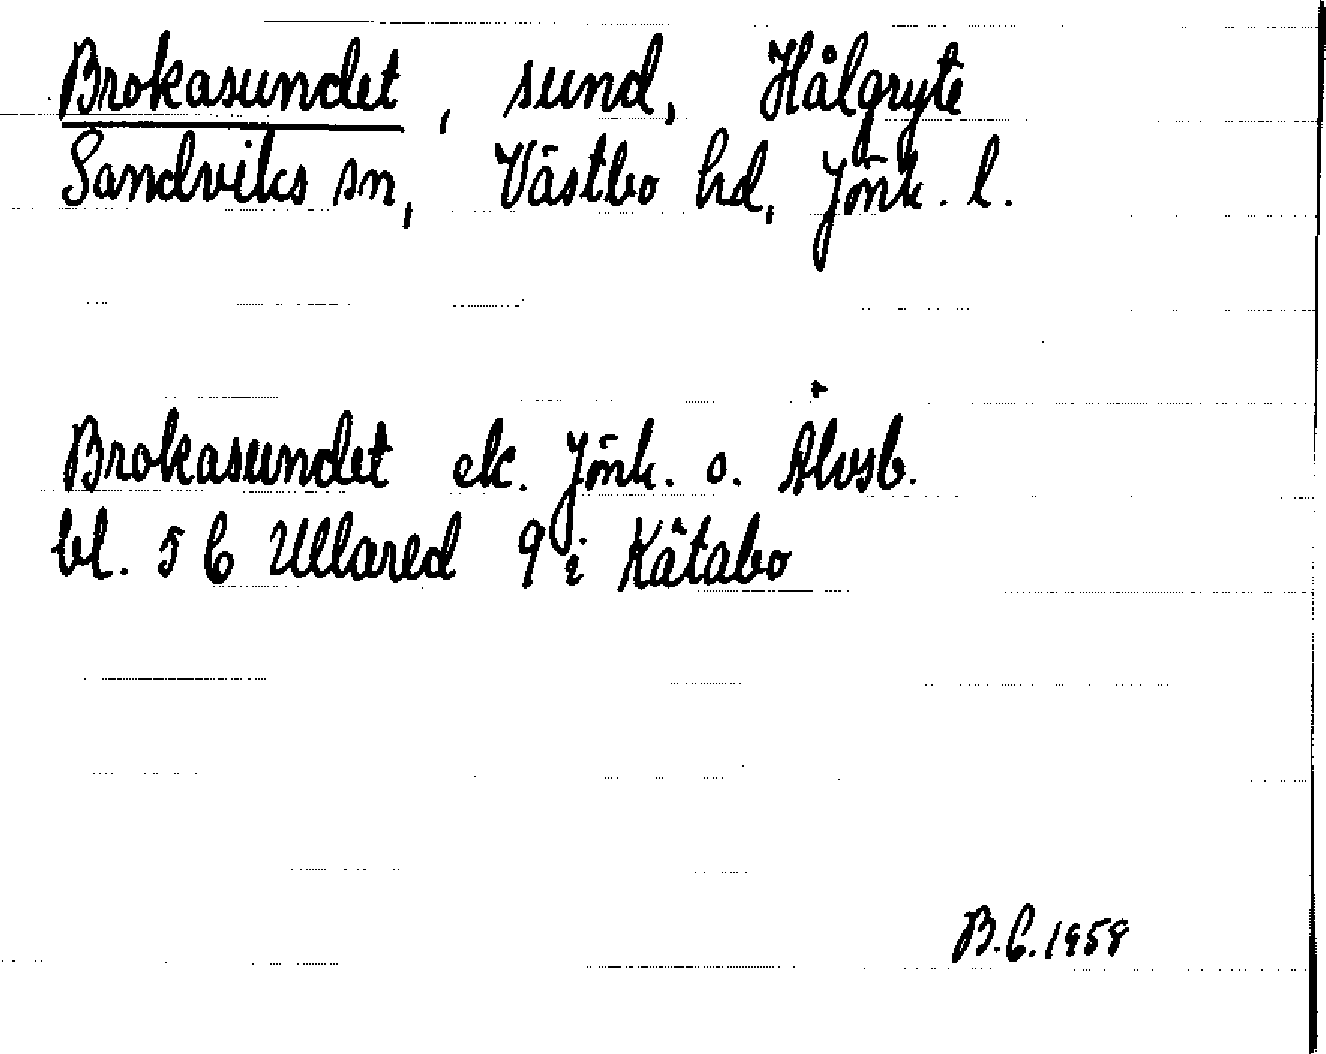 Brokasundet, sund, Hålgryte
Sandviks sn, Västbo hd, Jönk. l.
Brokasundet ek. Jönk. o. Älvsb.
bl. 5 C Ullared 9 i Kätabo
B.C. 1958